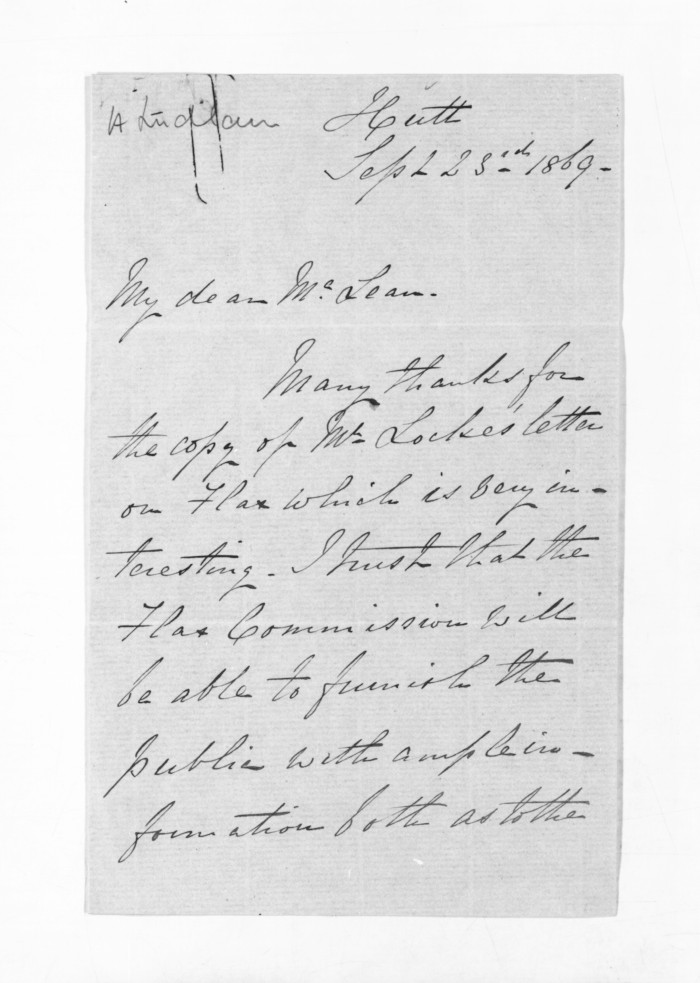 A Ludlam
Hutt
Sept 23rd 1869-
My dear McLean.
Many thanks for
the copy of Mr Locke's letter
on Flax which is very in-
teresting. I trust that the
Flax Commission will
be able to furnish the
public with ample in-
formation both as to the